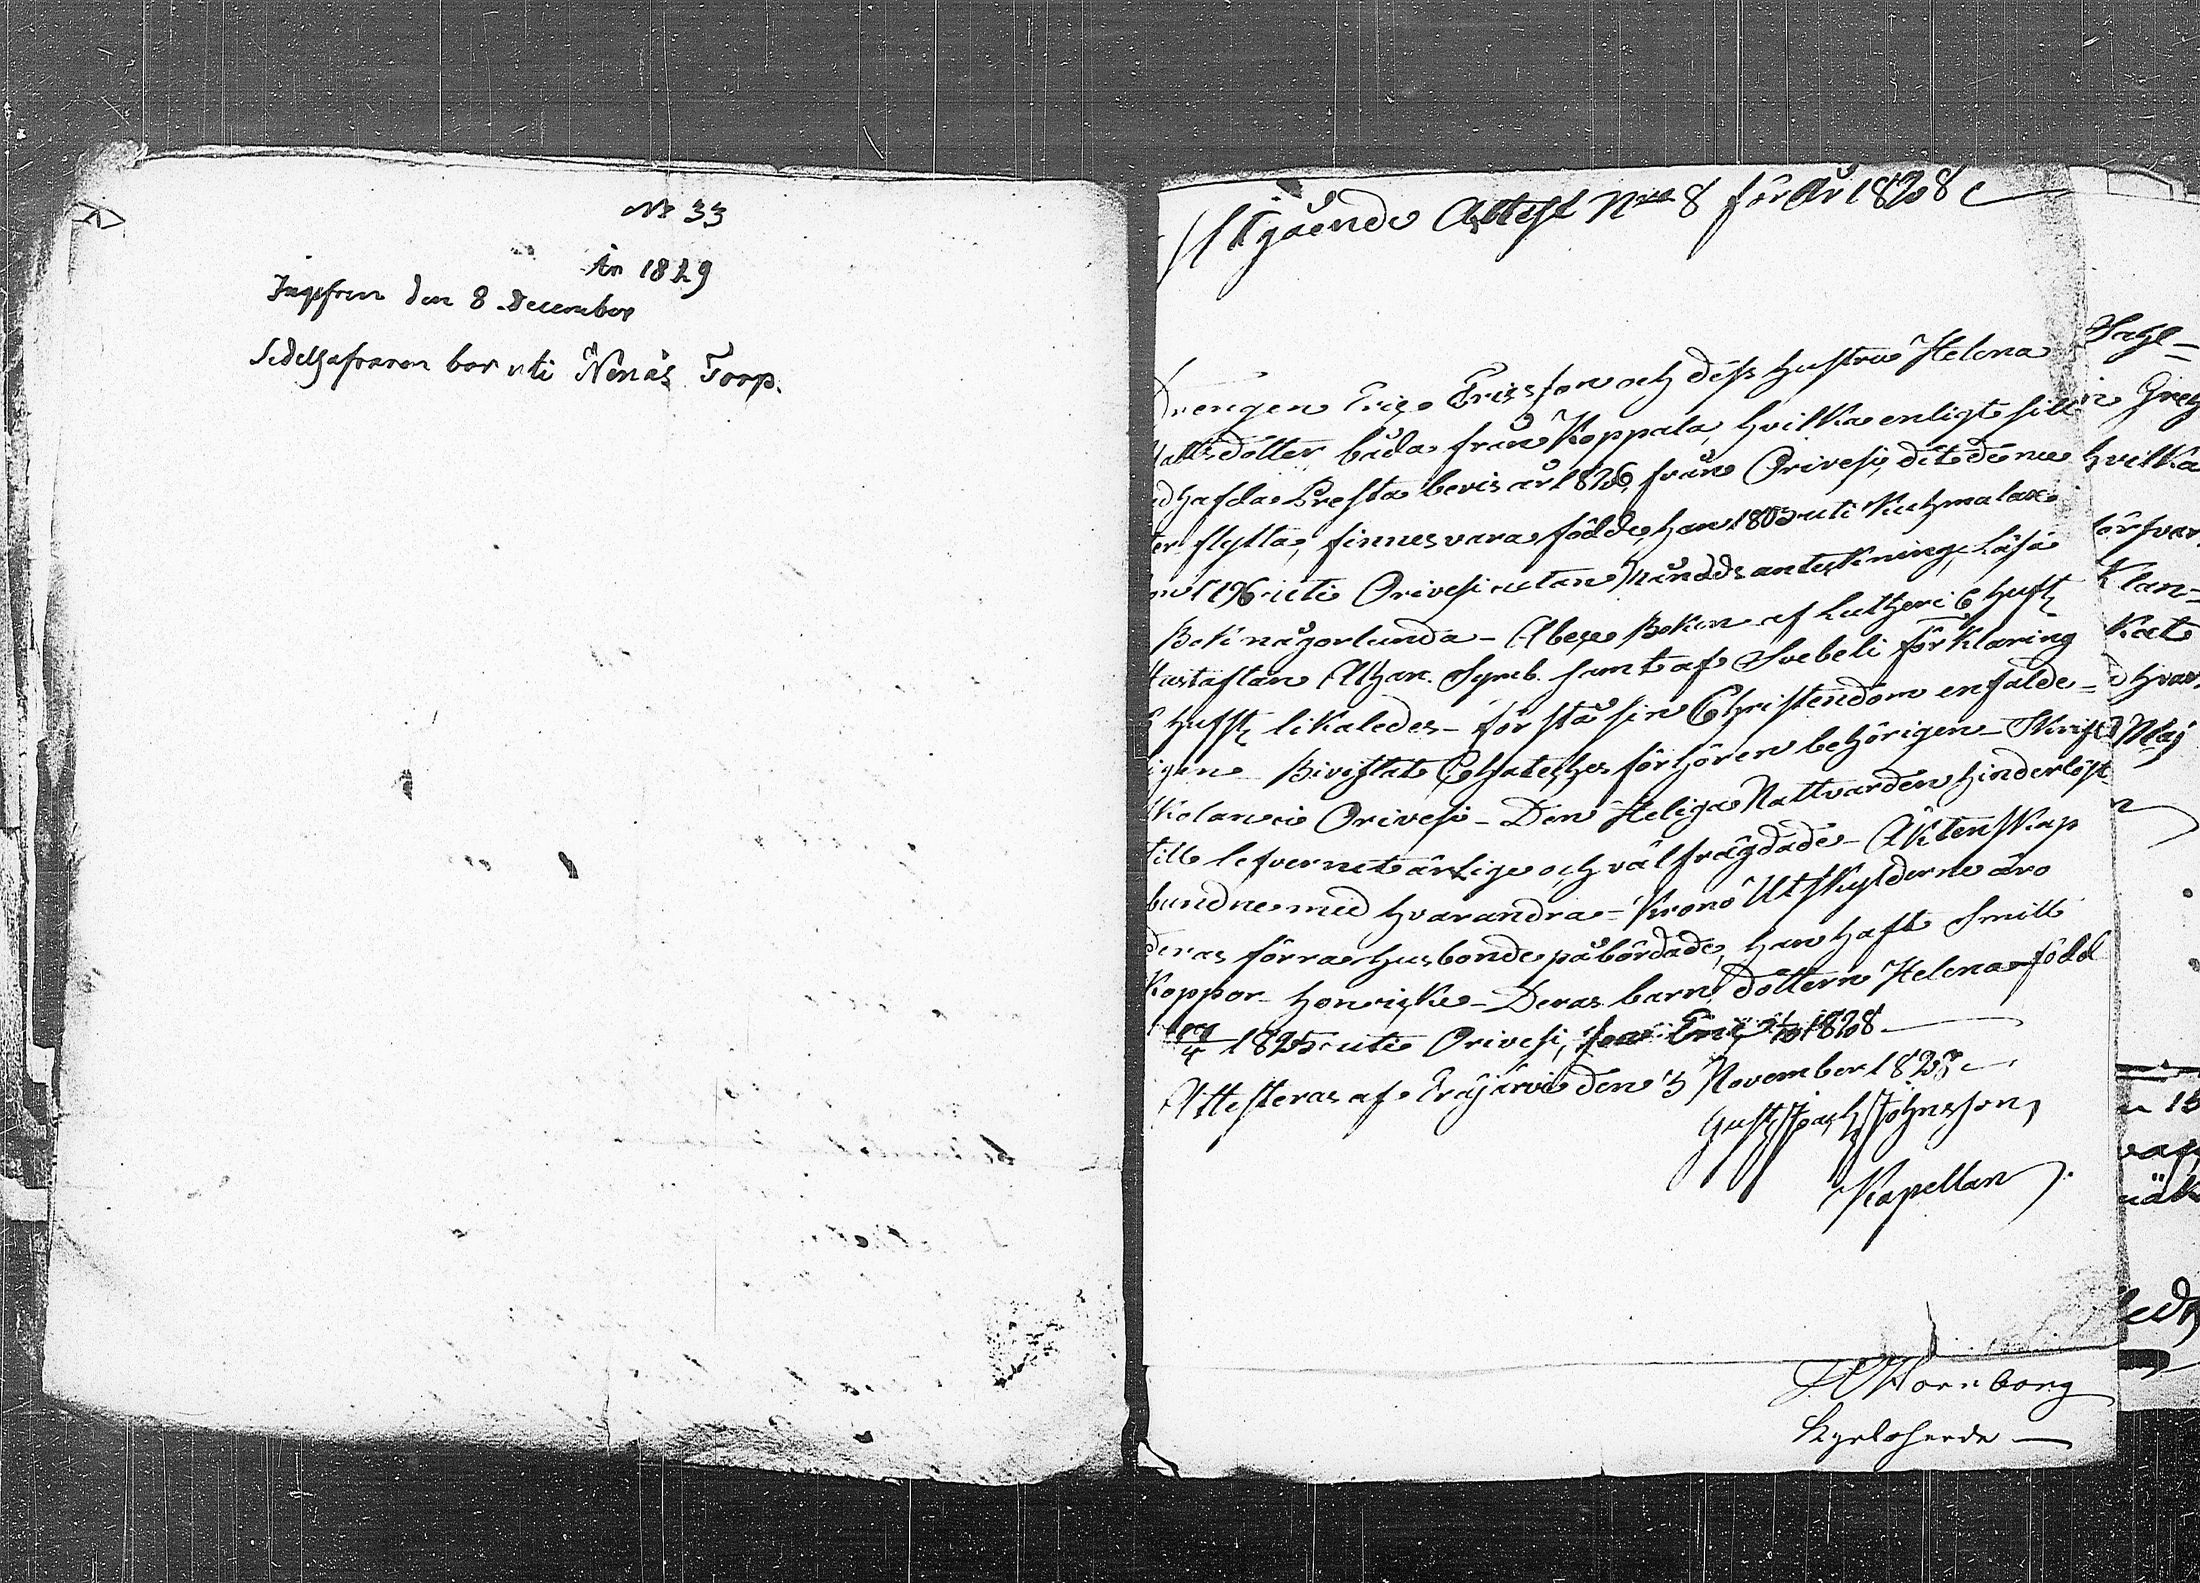 No 33
År 1829
den 8 December
Sedelhafvaren bor uti Nenäs Torp.
Utgående Attest Nro 8 för År 1828
Drengen Eric Ericsson och dess hustru Helena
Mattsdotter båda från Koppala, hvilka enligt sitt
medhafda Presta bevis år 1826 från Orivesi, dit de nu
åter flytta, finnes vara födde, han 1803 uti Kuhmalax
hon 1796 uti Orivesi utan Händds anteckning, Läsa
i Bok någorlunda - Abc Boken af Lutheri Catk. 6 Hufst.
Hustaflan Athan. Symb. samt af Svebeli förklaring
3 Hufst. likaledes - förstå sin Christendom enfalde-
ligen Bivistat Chateches förhören behörigen - Skrift
skolan i Orivesi - Den Heliga Nattvarden hinderlöst
till lefvernet ärlige och välfrägdade - Äktenskap
bundne med hvarandra - Krono Utskylderne äro
deras förra husbonde påbördade, han haft Smitt
Koppor hon icke - Deras barn, dottern Helena född
/4 1825 uti Orivesi, son Eric /10 1828
Attesteras af Eräjärvi den 3 November 1828
Gust. Joach. Johnsson
Kapellan
Hornborg
Kyrkoherde
Sahl-
in Greg
hvilka
örsvar
Klan-
kat
hvar
Maj